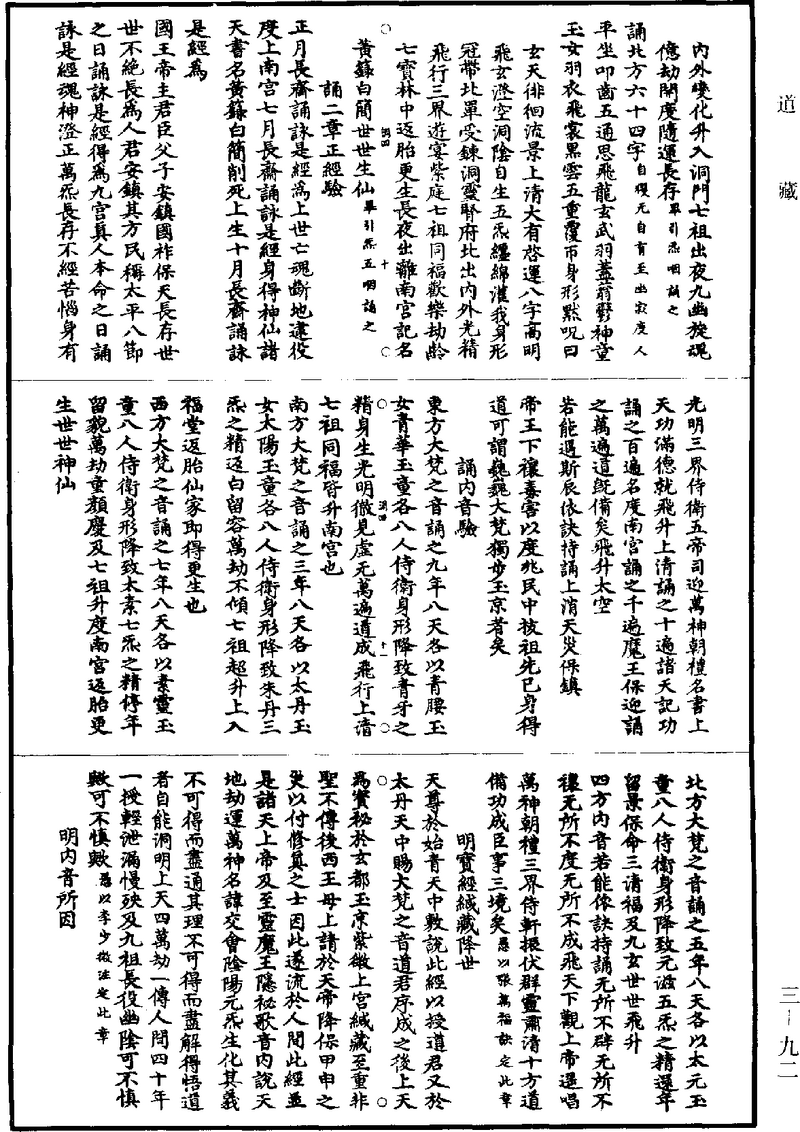 道藏
內外變化升入洞門七祖出夜九幽旋魂
億劫開度隨運長存畢引炁咽誦之
誦北方六十四字自櫻无自育至幽寂度人
平坐叩齒五通思飛龍玄武羽蓋蓊鬱神童
玉女羽衣飛裳黑雲五重覆帀身形默呪曰
玄天徘徊流景上清大有啓運八字高明
飛玄澄空洞陰自生五炁纏綿灌我身形
冠帶北單受鍊洞靈腎府北出內外光精
飛行三界遊宴紫庭七祖同福歡樂劫齡
七寶林中返胎更生長夜出離南宮記名
黃籙白簡世世生仙畢引炁五咽誦之
誦二章正經驗
正月長齋誦詠是經爲上世亡魂斷地逮役
度上南宮七月長齋誦詠是經身得神仙諸
天書名黃籙白簡削死上生十月長齋誦詠
是經爲
國王帝主君臣父子安鎮國祚保天長存世
世不絕長爲人君安鎮其方民稱太平八節
之日誦詠是經得爲九宮真人本命之日誦
詠是經魂神澄正萬炁長存不經苦惱身有
光明三界侍衛五帝司迎萬神朝禮名書上
天功滿德就飛升上清誦之十遍諸天記功
誦之百遍名度南宮誦之千遍魔王保迎誦
之萬遍道旣備矣飛升太空
若能遇斯辰依訣持誦上消天災保鎮
帝王下禳毒害以度兆民中拔祖先己身得
道可謂巍巍大梵獨步玉京者矣
誦內音驗
東方大梵之音誦之九年八天各以青腰玉
女青華玉童各八人侍衛身形降致青牙之
精身生光明徹見虛无萬遍道成飛行上清
七祖同福皆升南宮也
南方大梵之音誦之三年八天各以太丹玉
女太陽玉童各八人侍衛身形降致朱丹三
炁之精返白留容萬劫不傾七祖超升上入
福堂返胎仙家即得更生也
西方大梵之音誦之七年八天各以素靈玉
童八人侍衛身形降致太素七炁之精停年
留貌萬劫童顏慶及七祖升度南宮返胎更
生世世神仙
北方大梵之音誦之五年八天各以太元玉
童八人侍衛身形降致元滋五炁之精還年
留景保命三清福及九玄世世飛升
四方內音若能依訣持誦无所不辟无所不
禳无所不度无所不成飛天下觀上帝遥唱
萬神朝禮三界侍軒振伏群靈肅清十方道
備功成臣事三境矣愚以張萬福訣定此章
明寶經緘藏降世
天尊於始青天中敷說此經以授道君又於
太丹天中賜大梵之音道君序成之後上天
爲寶秘於玄都玉京紫微上宮緘藏至重非
聖不傳後西王母上請於天帝降保甲申之
災以付修真之士因此遂流於人間此經並
是諸天上帝及至靈魔王隱祕歌音內說天
地劫運萬神名諱交會陰陽元炁生化其義
不可得而盡通其理不可得而盡解得悟道
者自能洞明上天四萬劫一傳人間四十年
一授輕泄漏慢殃及九祖長役幽陰可不慎
歟可不慎歟愚以李少微注定此章
明內音所因
三-九二